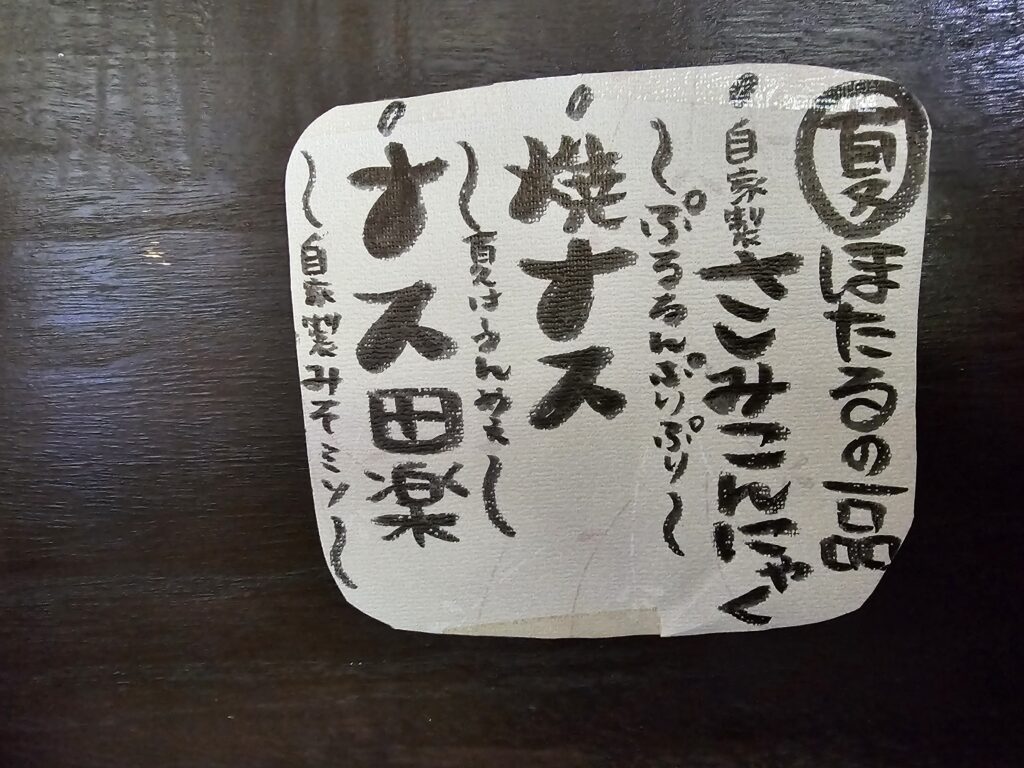 夏ほたるの一品
・自家製さしみこんにゃく
～ぷるるんぷりぷり～
・焼ナス
～夏はうんめえ～
・ナス田楽
～自家製みそミソ～